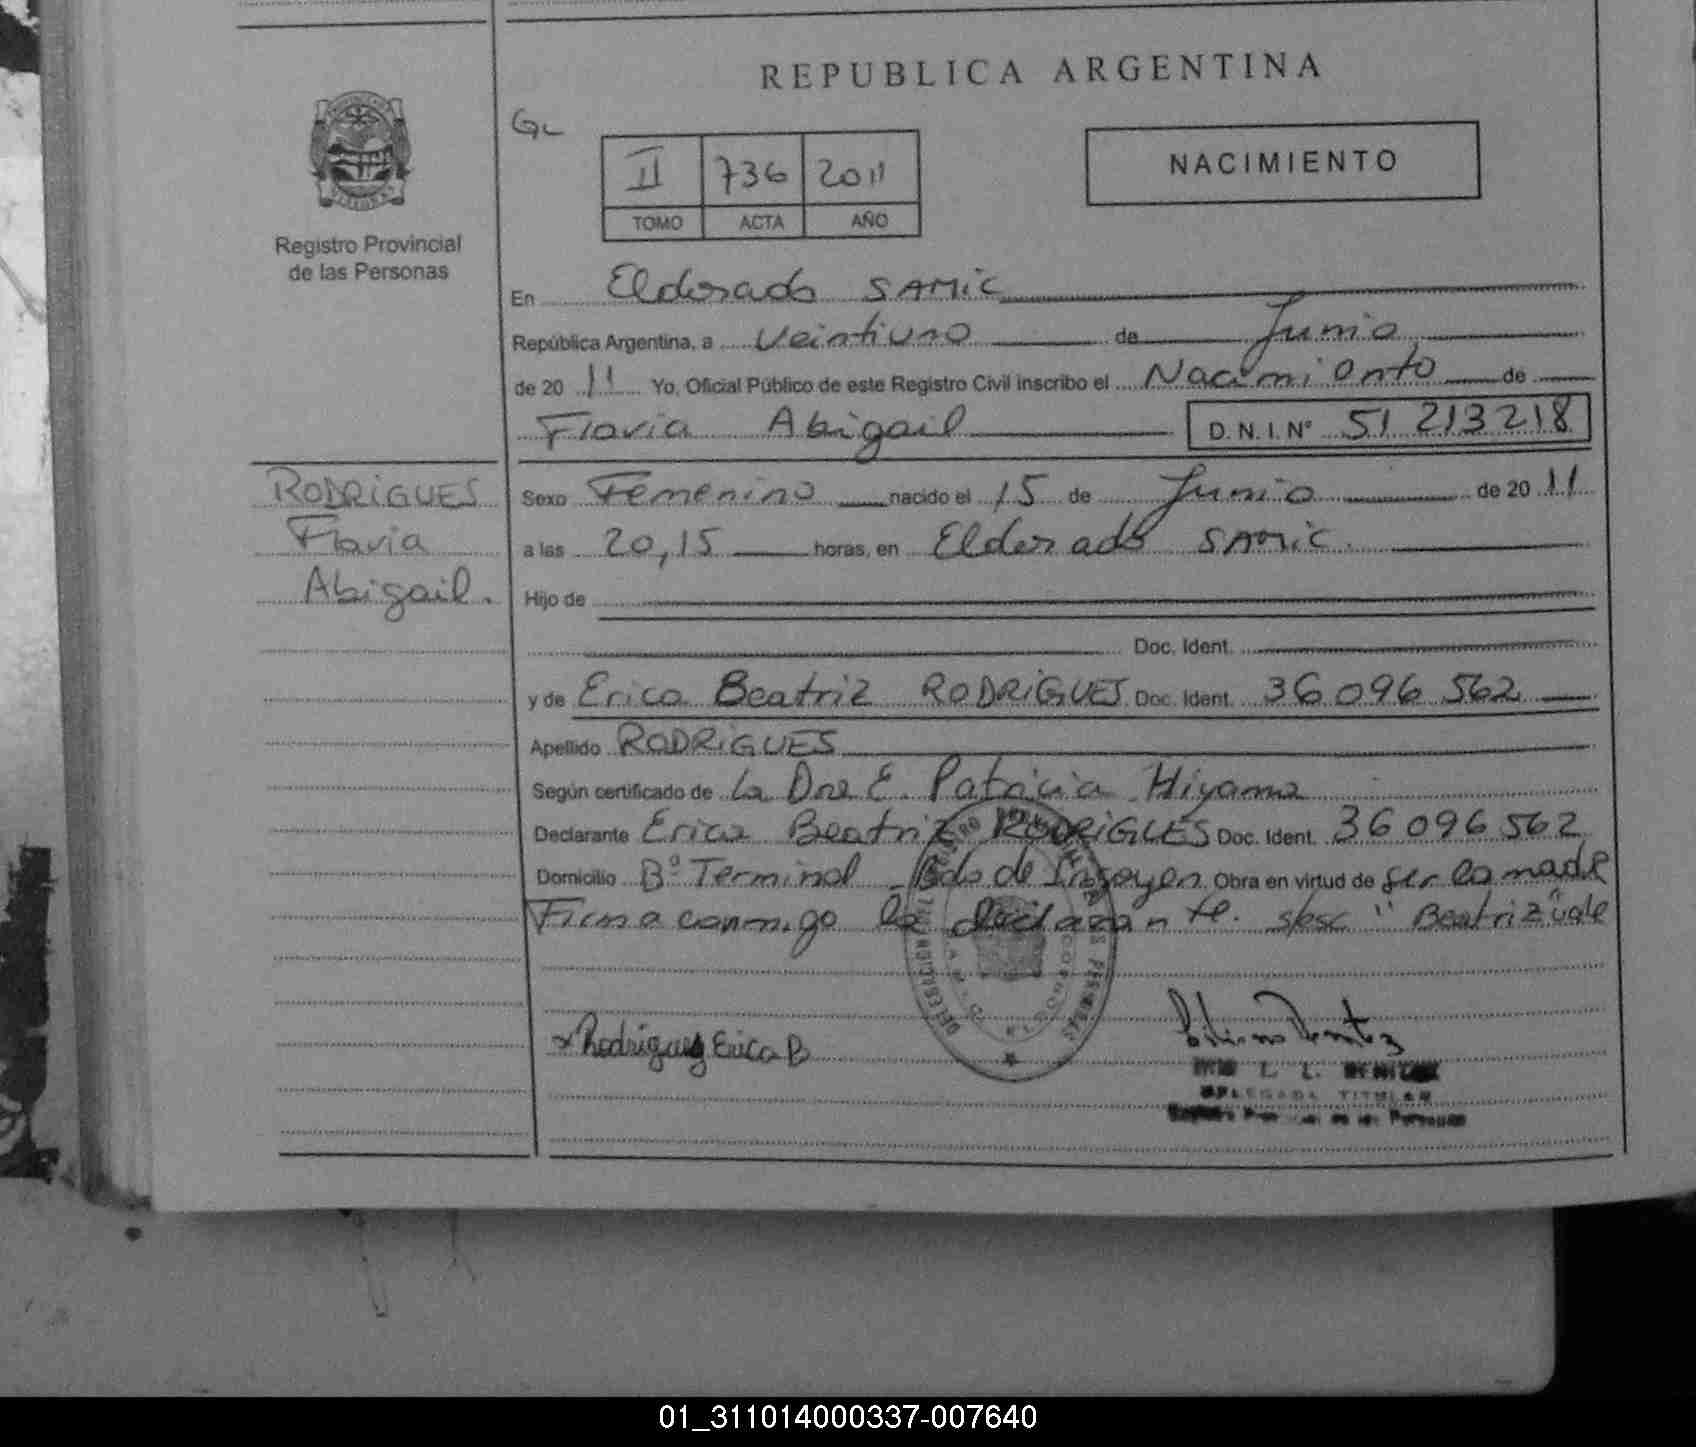 REPUBLICA ARGENTINA
GL
II 736 2011
TOMO ACTA AÑO
NACIMIENTO
Registro Provincial
de las Personas
En Eldorado SAMIC
República Argentina, a Veintiuno de Junio
de 20 11 Yo, Oficial Público de este Registro Civil inscribo el Nacimiento de
Flavia Abigail D.N.I.N° 51 213218
RODRIGUES
Flavia
Abigail.
Sexo Femenino nacido el 15 de Junio de 20 11
a las 20,15 horas, en Eldorado SAMIC.
Hijo de
Doc. Ident.
y de Erica Beatriz RODRIGUES Doc. Ident. 36 096 562
Apellido RODRIGUES
Según certificado de La Dra E. Patricia Hiyama
Declarante Erica Beatriz RODRIGUES Doc. Ident. 36 096 562
Domicilio B° Terminal Bdo de Irigoyen Obra en virtud de ser la madre
Firma conmigo la declarante. s/esc "Beatriz" vale
Rodrigues Erica B
L. L. BENITEZ
DELEGADA TITULAR
Registro de las Personas
01_311014000337-007640